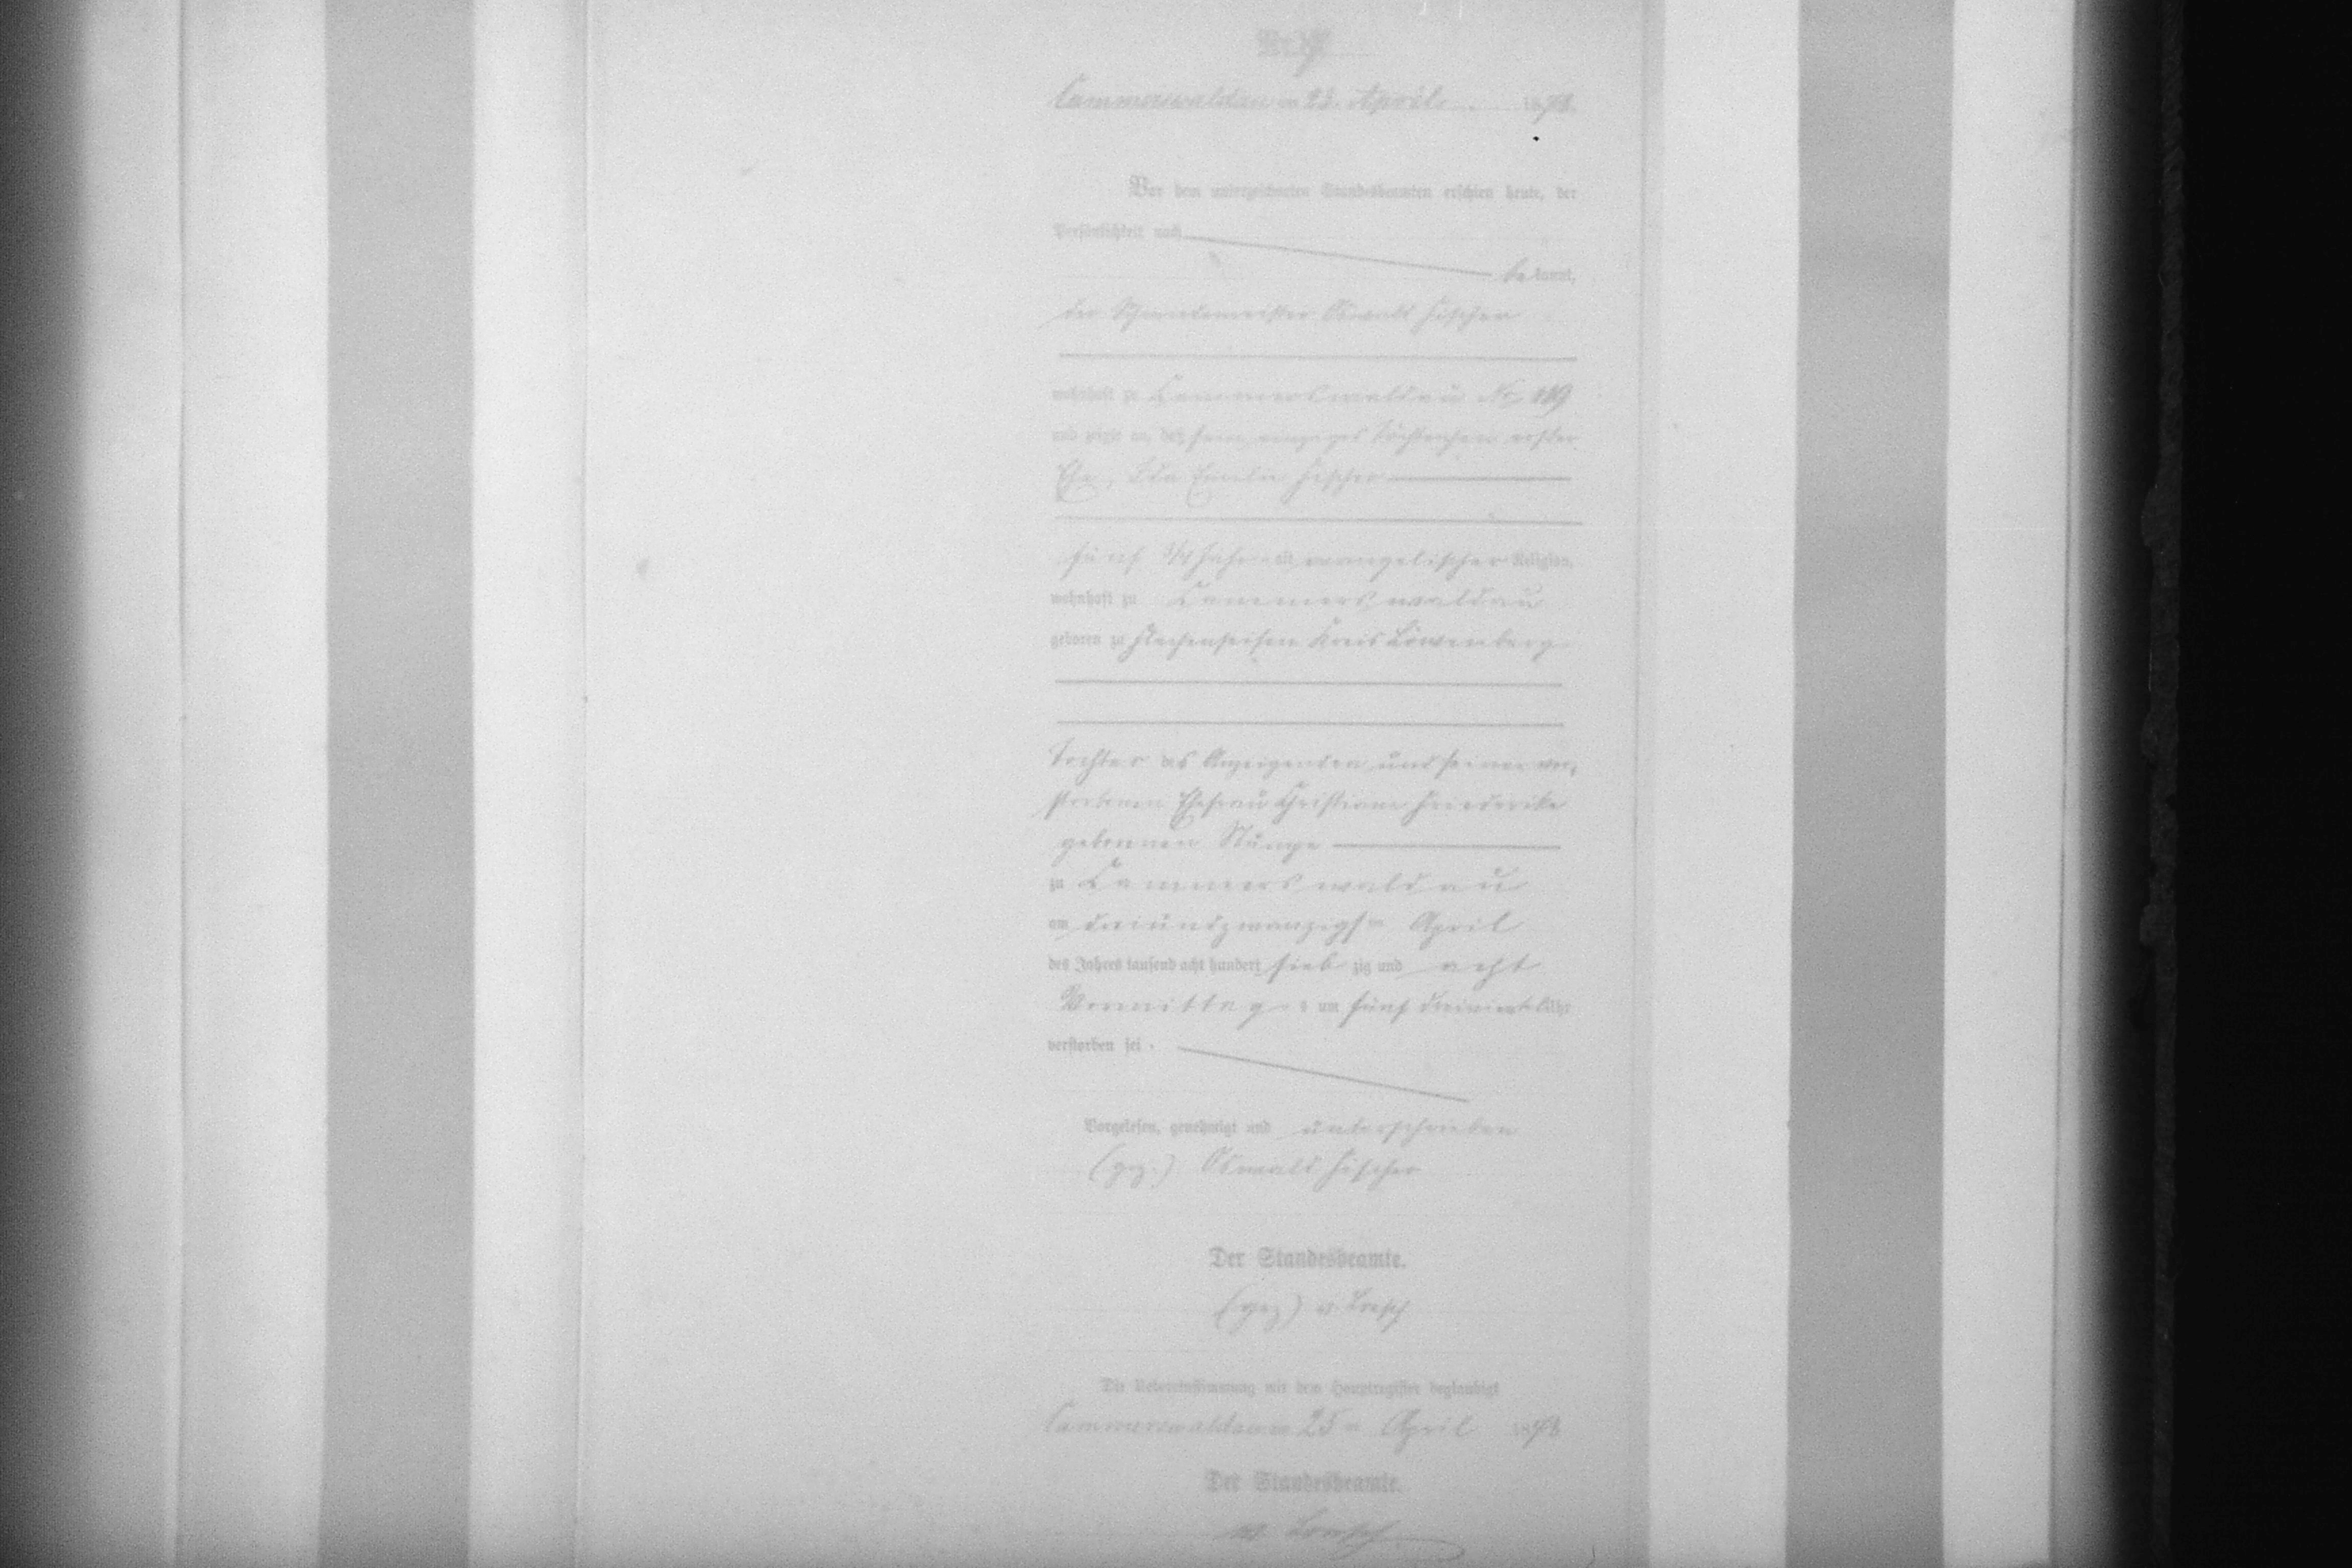 Cammerswaldau am 25. April 1878.
Vor dem unterzeichneten Standesbeamten erschien heute, der
Persönlichkeit nach
be kannt,
der Oswald Fischer
wohnhaft zu Cammerswaldau No 119
und zeigte an, daß sein einziges Töchterchen erster
Ehe, Ida Fischer
fünf 3/4 Jahre alt, evangelischer Religion,
wohnhaft zu Cammerswaldau
geboren zu Flachenseifen Kreis Löwenberg
Tochter des Anzeigenden und seiner ver-
storbenen Ehefrau Christiane Friederike
geborenen
zu Cammerswaldau
am dreiundzwanzigsten April
des Jahres tausend acht hundert sieb zig und acht
Vormittags um fünf dreiviertel Uhr
verstorben sei.
Vorgelesen, genehmigt und unterschrieben
(gez.) Oswald Fischer
Der Standesbeamte.
(gez)
Die Uebereinstimmung mit dem Hauptregister beglaubigt
Cammerswaldau am 25 ten April 1878
Der Standesbeamte.